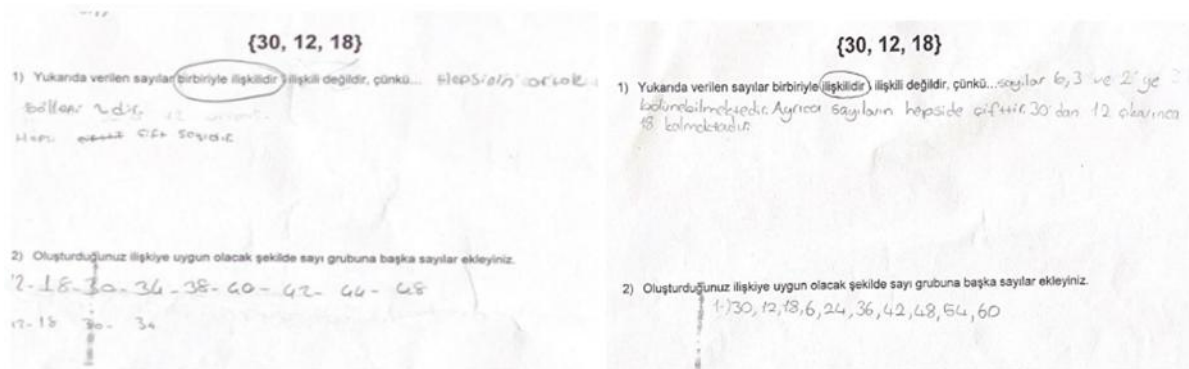 {30, 12, 18}
1) Yukarıda verilen sayılar birbiriyle ilişkilidir / ilişkili değildir, çünkü... Hepsinin ortak
bölleni 2 dir.
Hepsi çift sayıdır.
2) Oluşturduğunuz ilişkiye uygun olacak şekilde sayı grubuna başka sayılar ekleyiniz.
12-18-30-34-38-40-42-44-48
12-18 30- 34
{30, 12, 18}
1) Yukarıda verilen sayılar birbiriyle ilişkilidir / ilişkili değildir, çünkü... sayılar 6,3 ve 2'ye
bölünebilmektedir. Ayrıca sayıların hepside çifttir. 30'dan 12 çıkarınca
18 kalmaktadır.
2) Oluşturduğunuz ilişkiye uygun olacak şekilde sayı grubuna başka sayılar ekleyiniz.
1-)30,12,18,6,24,36,42,48,54,60